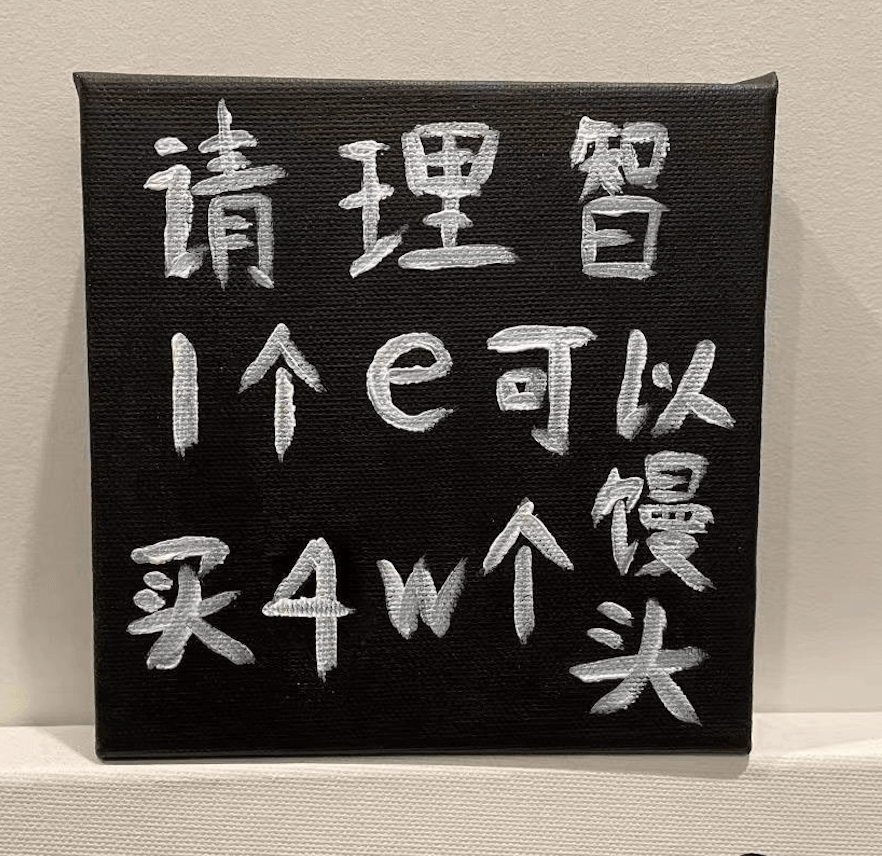 请理智
1个e可以
买4w个馒头